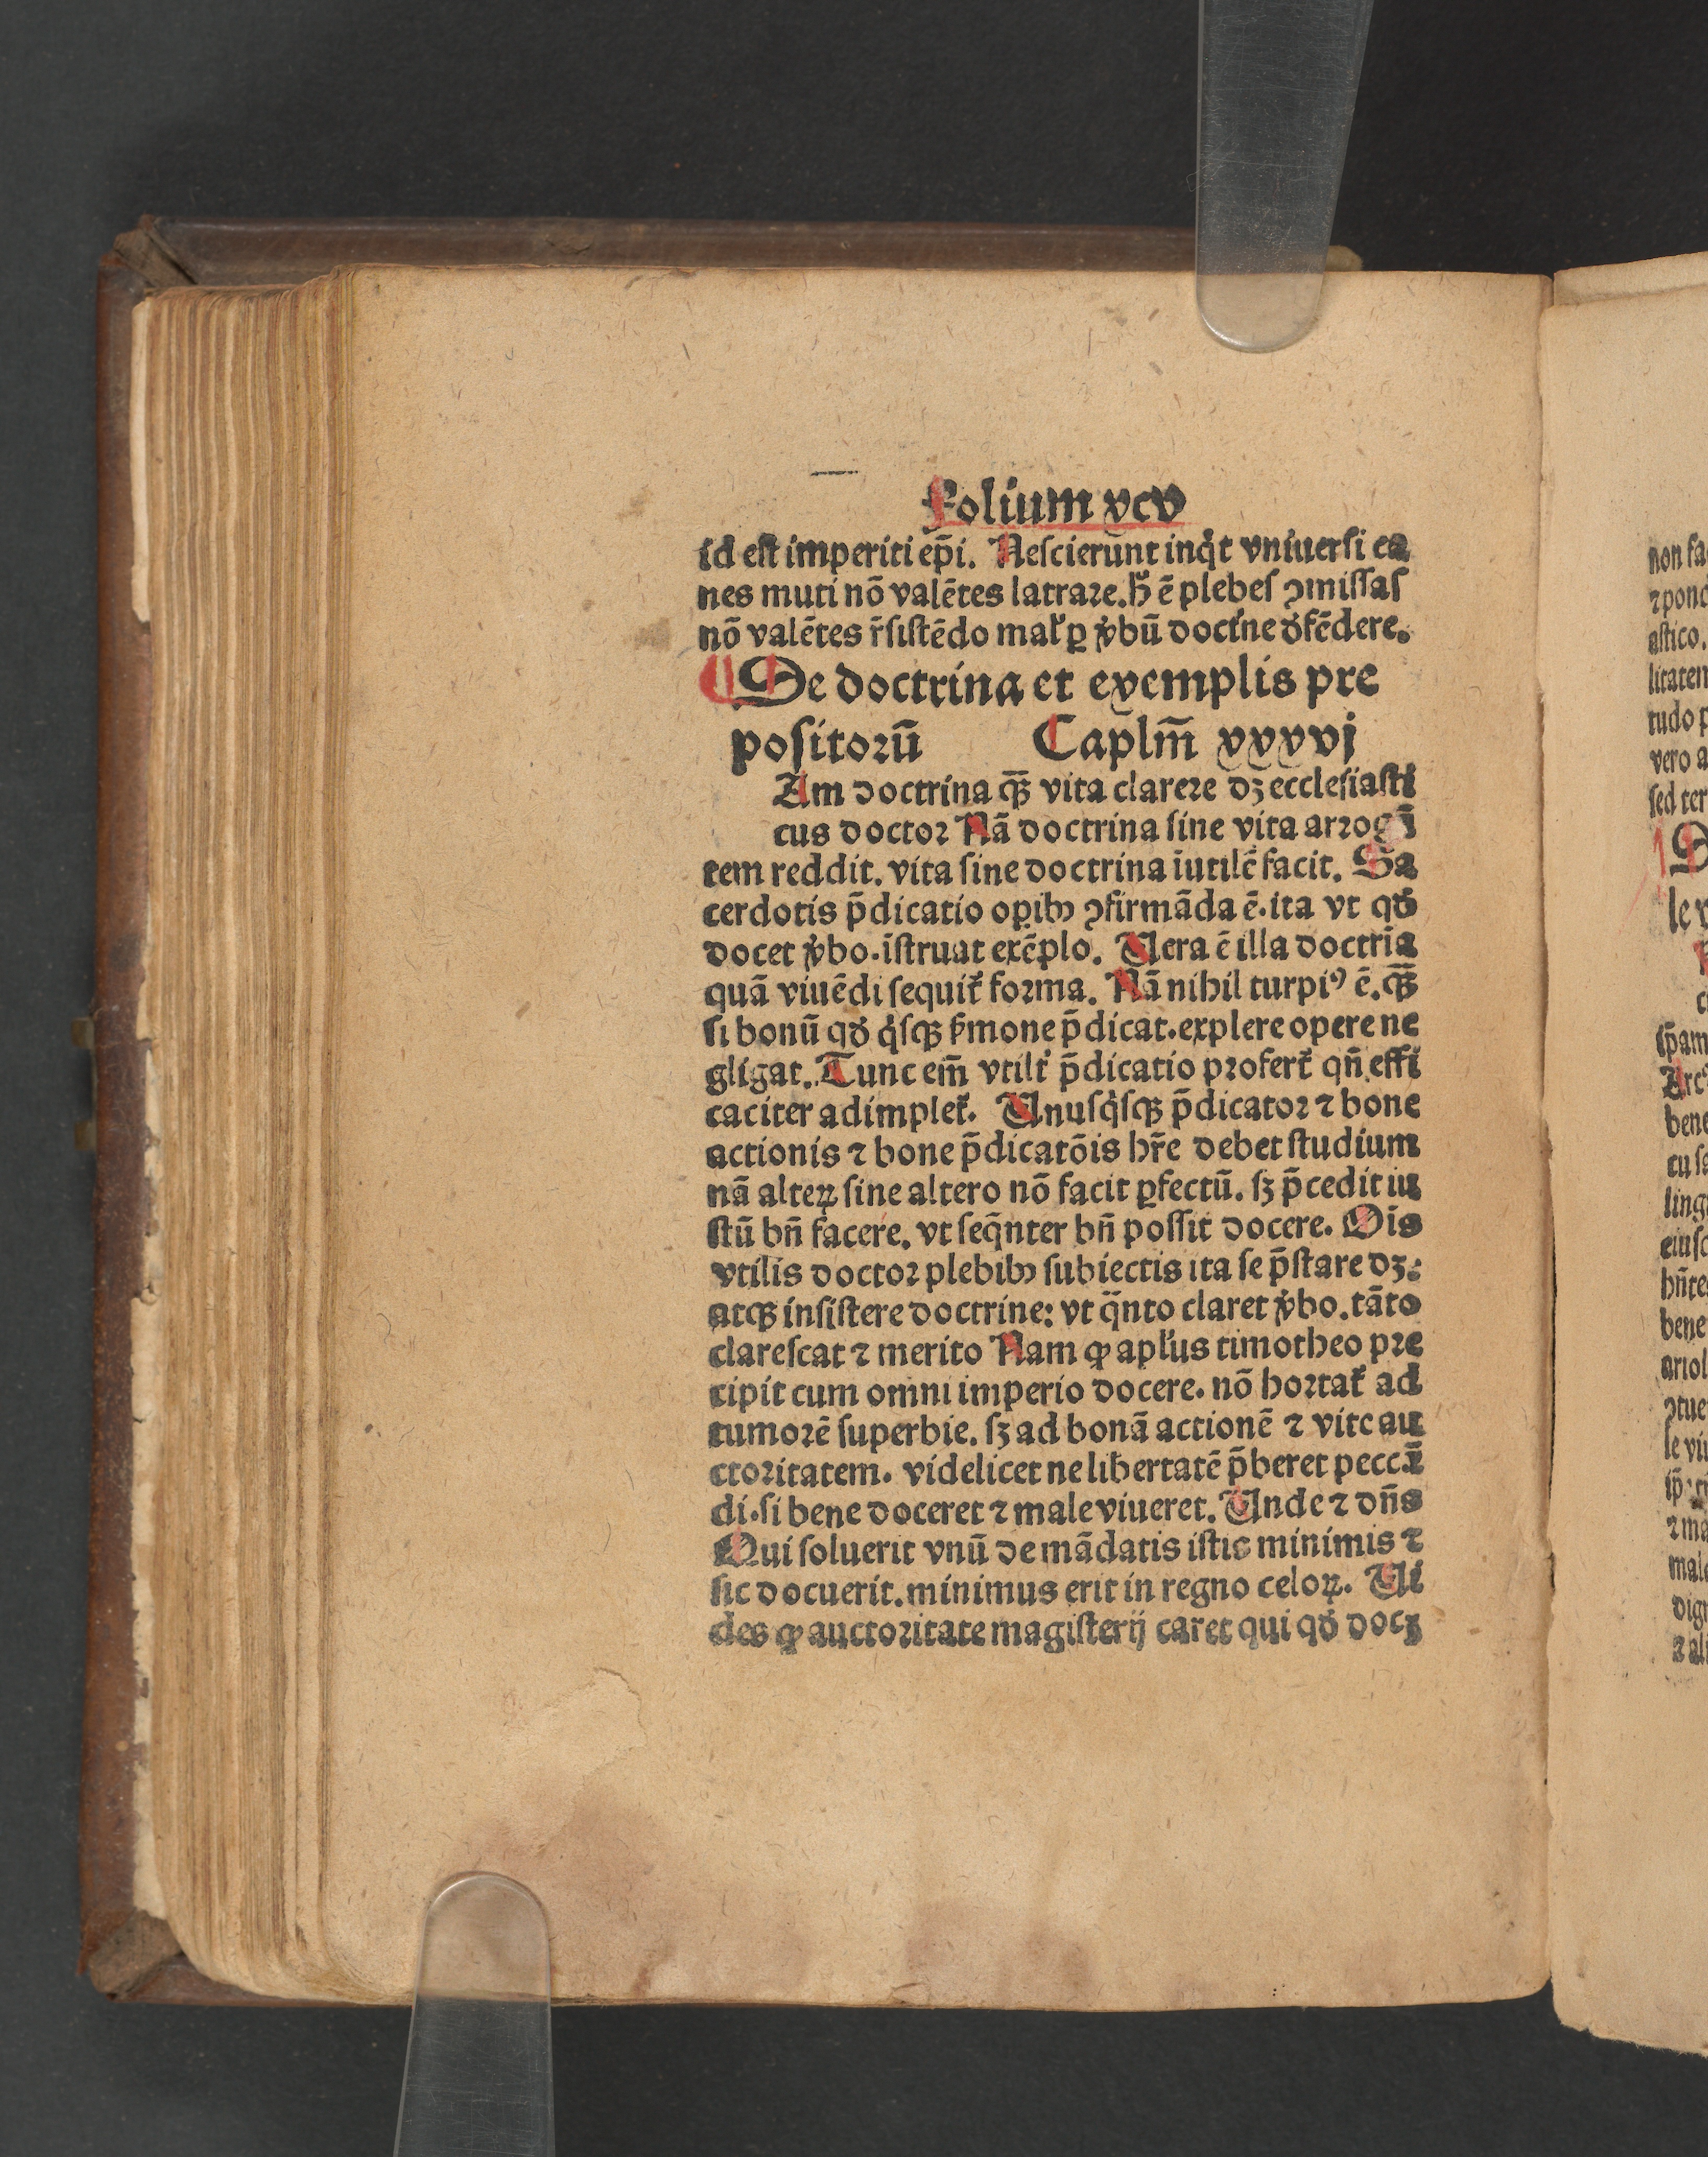 Folium xcv
id est imperiti ep̄i. Nescierunt inq̇t vniuersi ca
nes muti nō valētes latrare. h̄ ē plebes ꝯmissas
nō valētes r̄sistēdo mal̕ ꝑ v̇bū doct̕ne d̕fēdere.
¶ De doctrina et exemplis pre
positorū Capl̄m̄ xxxvj
Am doctrina qꝫ̄ vita clarere dꝫ ecclesiasti
cus doctor Nā doctrina sine vita arrogā
tem reddit. vita sine doctrina īutilē facit. Sa
cerdotis p̄dicatio oꝑibꝰ ꝯfirmāda ē. ita vt qd̕
docet v̇bo. īstruat exēplo. Uera ē illa doctrīa
quā viuēdi sequit̕ forma. Nā nihil turpiꝰ ē. qꝫ̄
si bonū qd̕ q̇sqꝫ s̕mone p̄dicat. explere opere ne
gligat. Tunc em̄ vtilit̕ p̄dicatio profert̕ qn̄ effi
caciter adimplet̕. Unusq̇sqꝫ p̄dicator ⁊ bone
actionis ⁊ bone p̄dicatōis hr̄e debet studium
nā alteꝝ sine altero nō facit ꝑfectū. sꝫ p̄cedit iu
stū bn̄ facere. vt seq̄nter bn̄ possit docere. Oīs
vtilis doctor plebibꝰ subiectis ita se p̄stare dꝫ.
atqꝫ insistere doctrine: vt q̄nto claret v̇bo. tāto
clarescat ⁊ merito Nam ꝙ apl̕us timotheo pre
cipit cum omni imperio docere. nō hortat̕ ad
tumorē superbie. sꝫ ad bonā actionē ⁊ vite au
ctoritatem. videlicet ne libertatē p̄beret peccā
di. si bene doceret ⁊ male viueret. Unde ⁊ dn̄s
Qui soluerit vnū de mādatis istis minimis ⁊
sic docuerit. minimus erit in regno celoꝝ. Ui
des ꝙ auctoritate magisterij caret qui qd̕ docꝫ